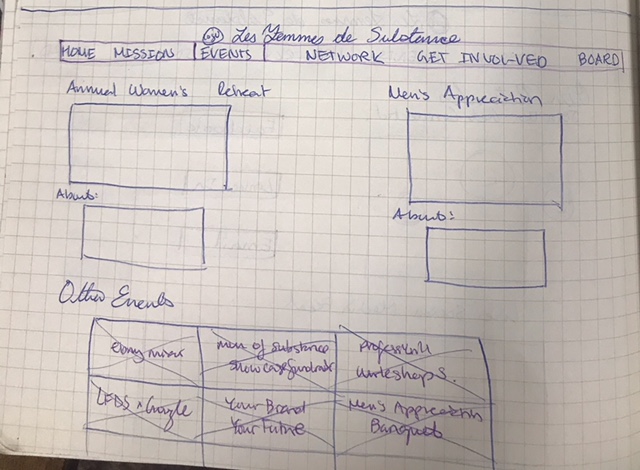 Les Femmes de Substance
HOME MISSION EVENTS NETWORK GET INVOLVED BOARD
Annual Women's Retreat
Men's Appreciation
About:
About:
Other Events
Ebony mixer
Man of Substance
Showcase fundraiser
Professional
Workshops.
LFDS x Google
Your Brand
Your Future
Men's Appreciation
Banquet